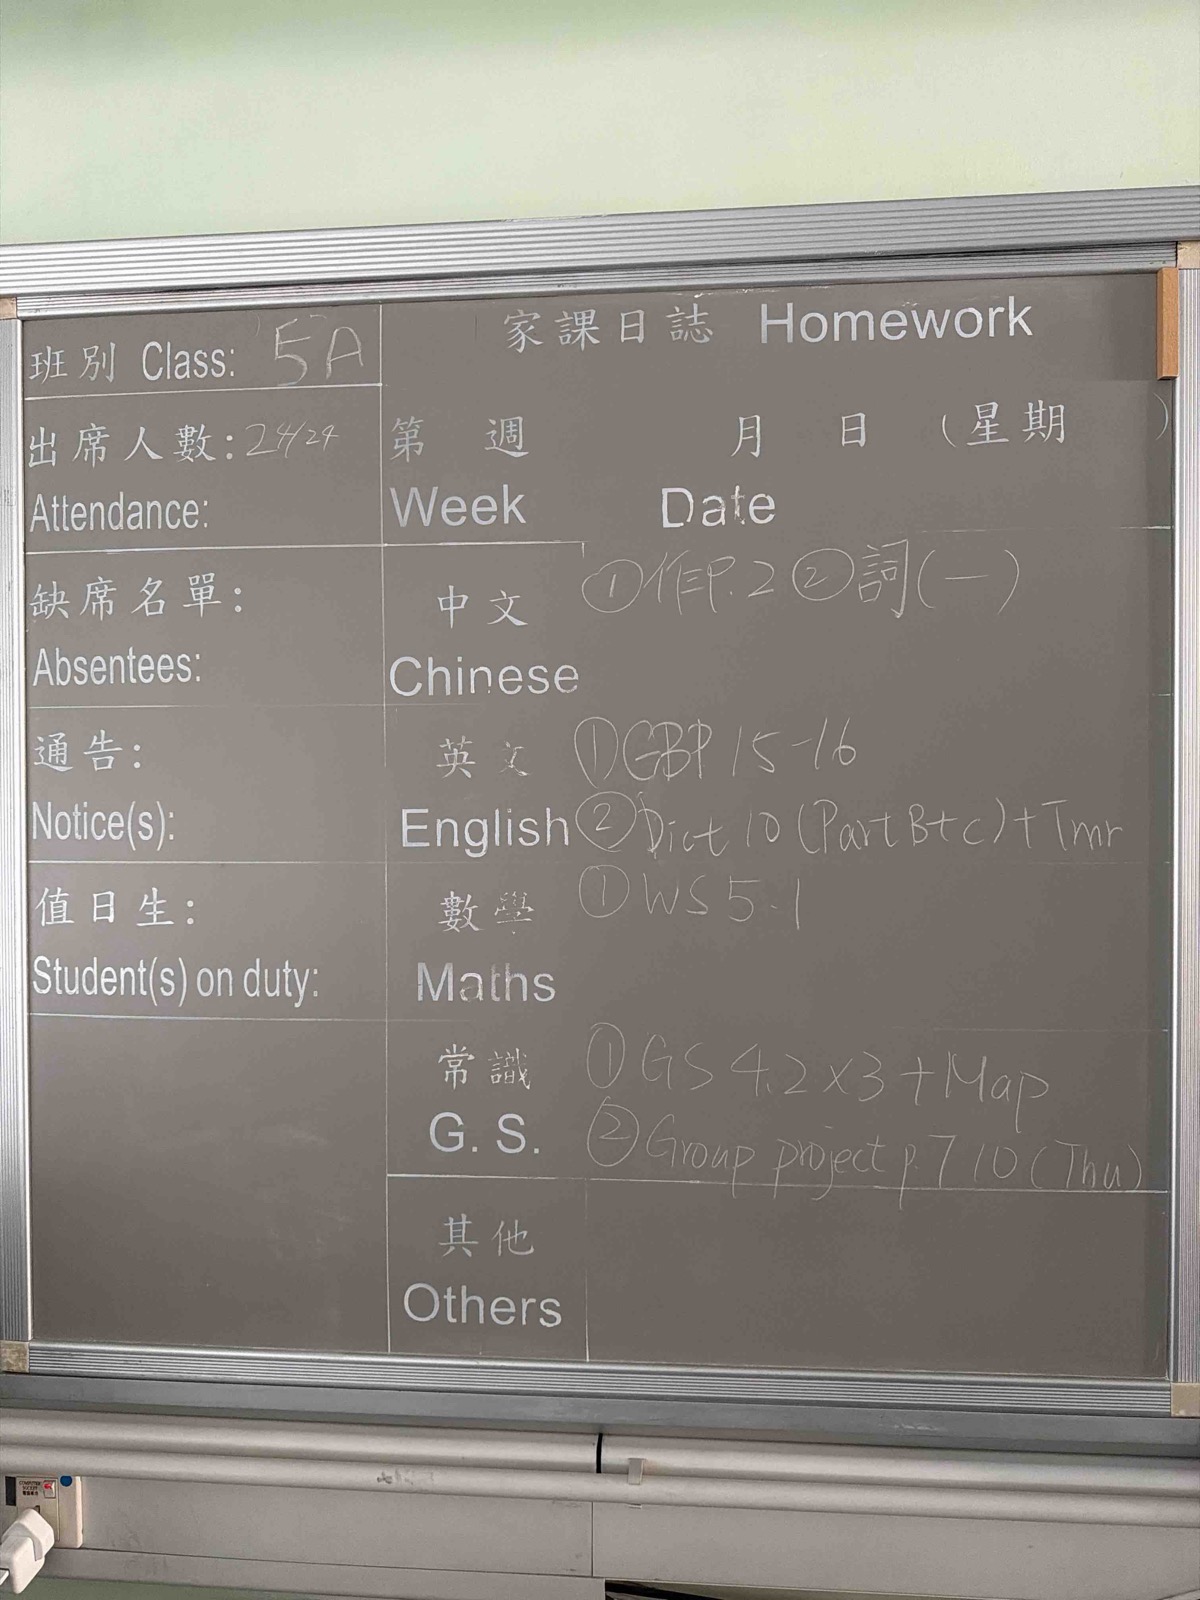 班別 Class: 5A
出席人數: 24/24
Attendance:
缺席名單:
Absentees:
通告:
Notice(s):
值日生:
Student(s) on duty:
家課日誌 Homework
第 週 月 日 (星期 )
Week Date
中文 ①作P.2 ②詞(一)
Chinese
英文 ①GBP 15-16
English ②Dict 10 (Part B+C)+Tmr
數學 ①WS 5.1
Maths
常識 ①GS 4.2x3+Map
G. S. ②Group project p.7 10 (Thu)
其他
Others